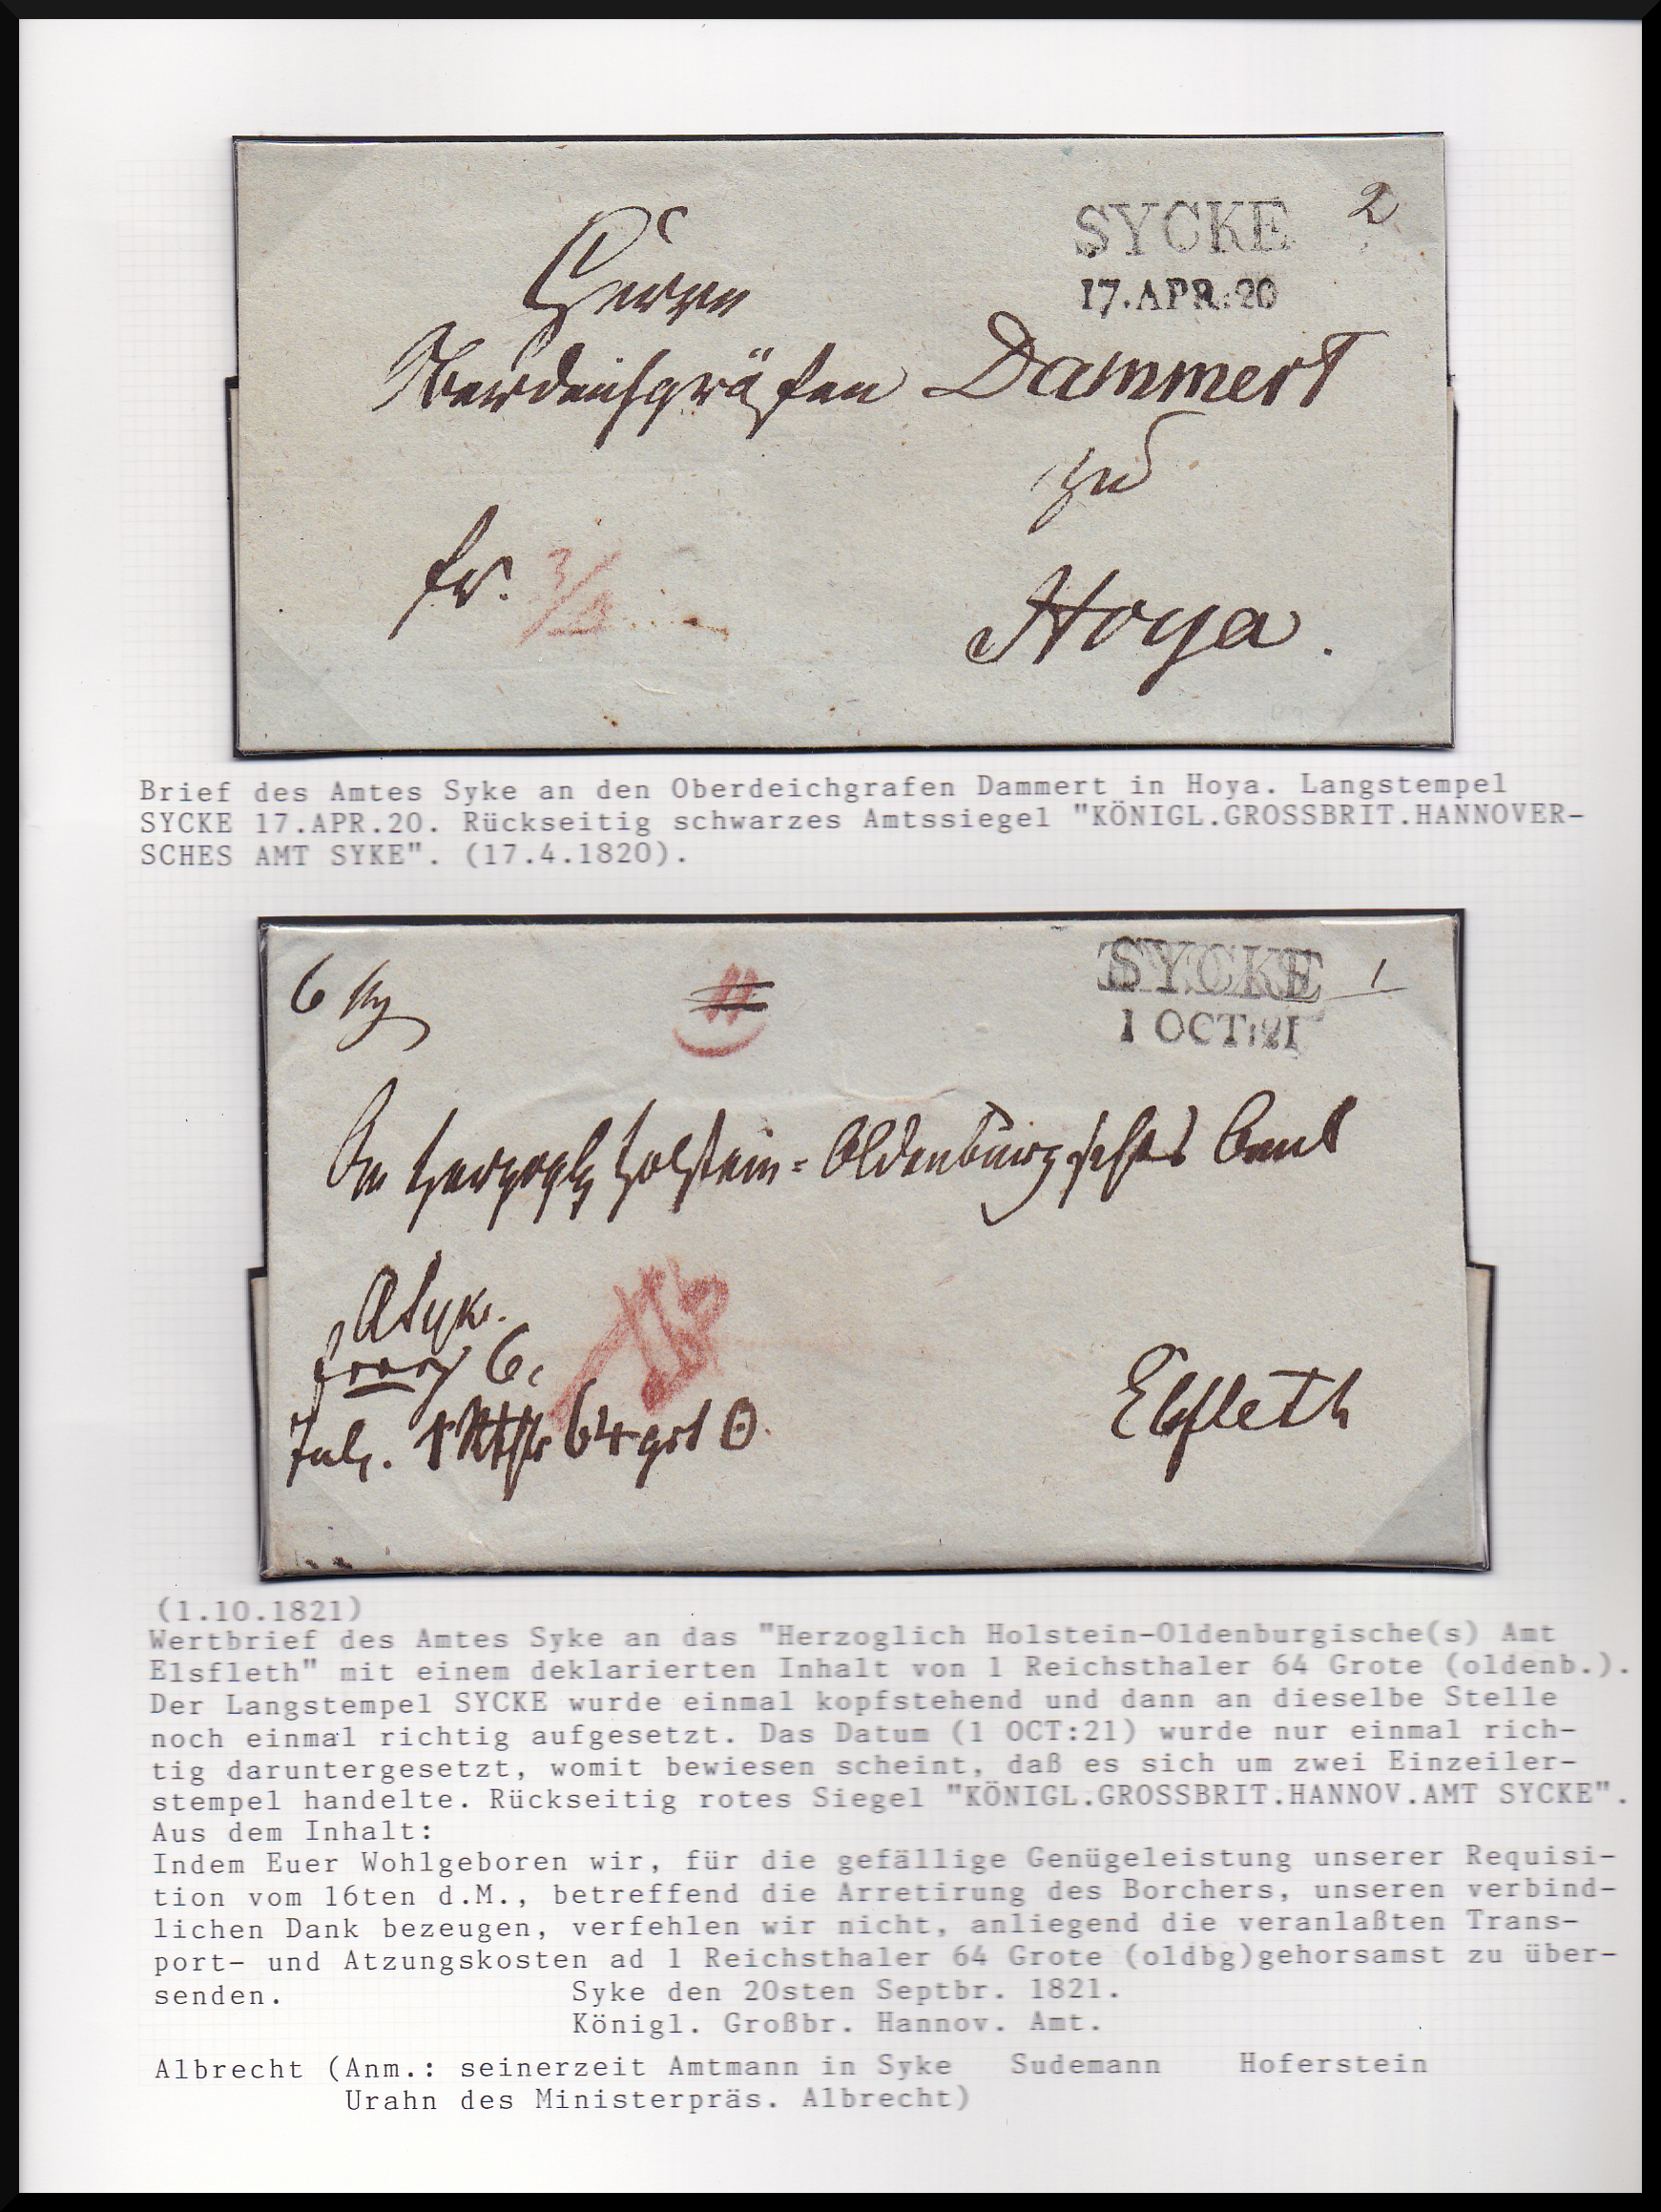 SYCKE 2
17.APR:20
Herrn
Oberdeichgräfen Dammert
zu
fr. 3/4
Hoya.
Brief des Amtes Syke an den Oberdeichgrafen Dammert in Hoya. Langstempel
SYCKE 17.APR.20. Rückseitig schwarzes Amtssiegel "KÖNIGL.GROSSBRIT.HANNOVER-
SCHES AMT SYKE". (17.4.1820).
6 SYCKE 1
1 OCT:21
An Herzogl Holstein=Oldenburgsches Amt
Syke.
6
Elsfleth
Inh. 1 Rthlr 64 grt
(1.10.1821)
Wertbrief des Amtes Syke an das "Herzoglich Holstein-Oldenburgische(s) Amt
Elsfleth" mit einem deklarierten Inhalt von 1 Reichsthaler 64 Grote (oldenb.).
Der Langstempel SYCKE wurde einmal kopfstehend und dann an dieselbe Stelle
noch einmal richtig aufgesetzt. Das Datum (1 OCT:21) wurde nur einmal rich-
tig daruntergesetzt, womit bewiesen scheint, daß es sich um zwei Einzeiler-
stempel handelte. Rückseitig rotes Siegel "KÖNIGL.GROSSBRIT.HANNOV.AMT SYCKE".
Aus dem Inhalt:
Indem Euer Wohlgeboren wir, für die gefällige Genügeleistung unserer Requisi-
tion vom 16ten d.M., betreffend die Arretirung des Borchers, unseren verbind-
lichen Dank bezeugen, verfehlen wir nicht, anliegend die veranlaßten Trans-
port- und Atzungskosten ad 1 Reichsthaler 64 Grote (oldbg)gehorsamst zu über-
senden. Syke den 20sten Septbr. 1821.
Königl. Großbr. Hannov. Amt.
Albrecht (Anm.: seinerzeit Amtmann in Syke Sudemann Hoferstein
Urahn des Ministerpräs. Albrecht)